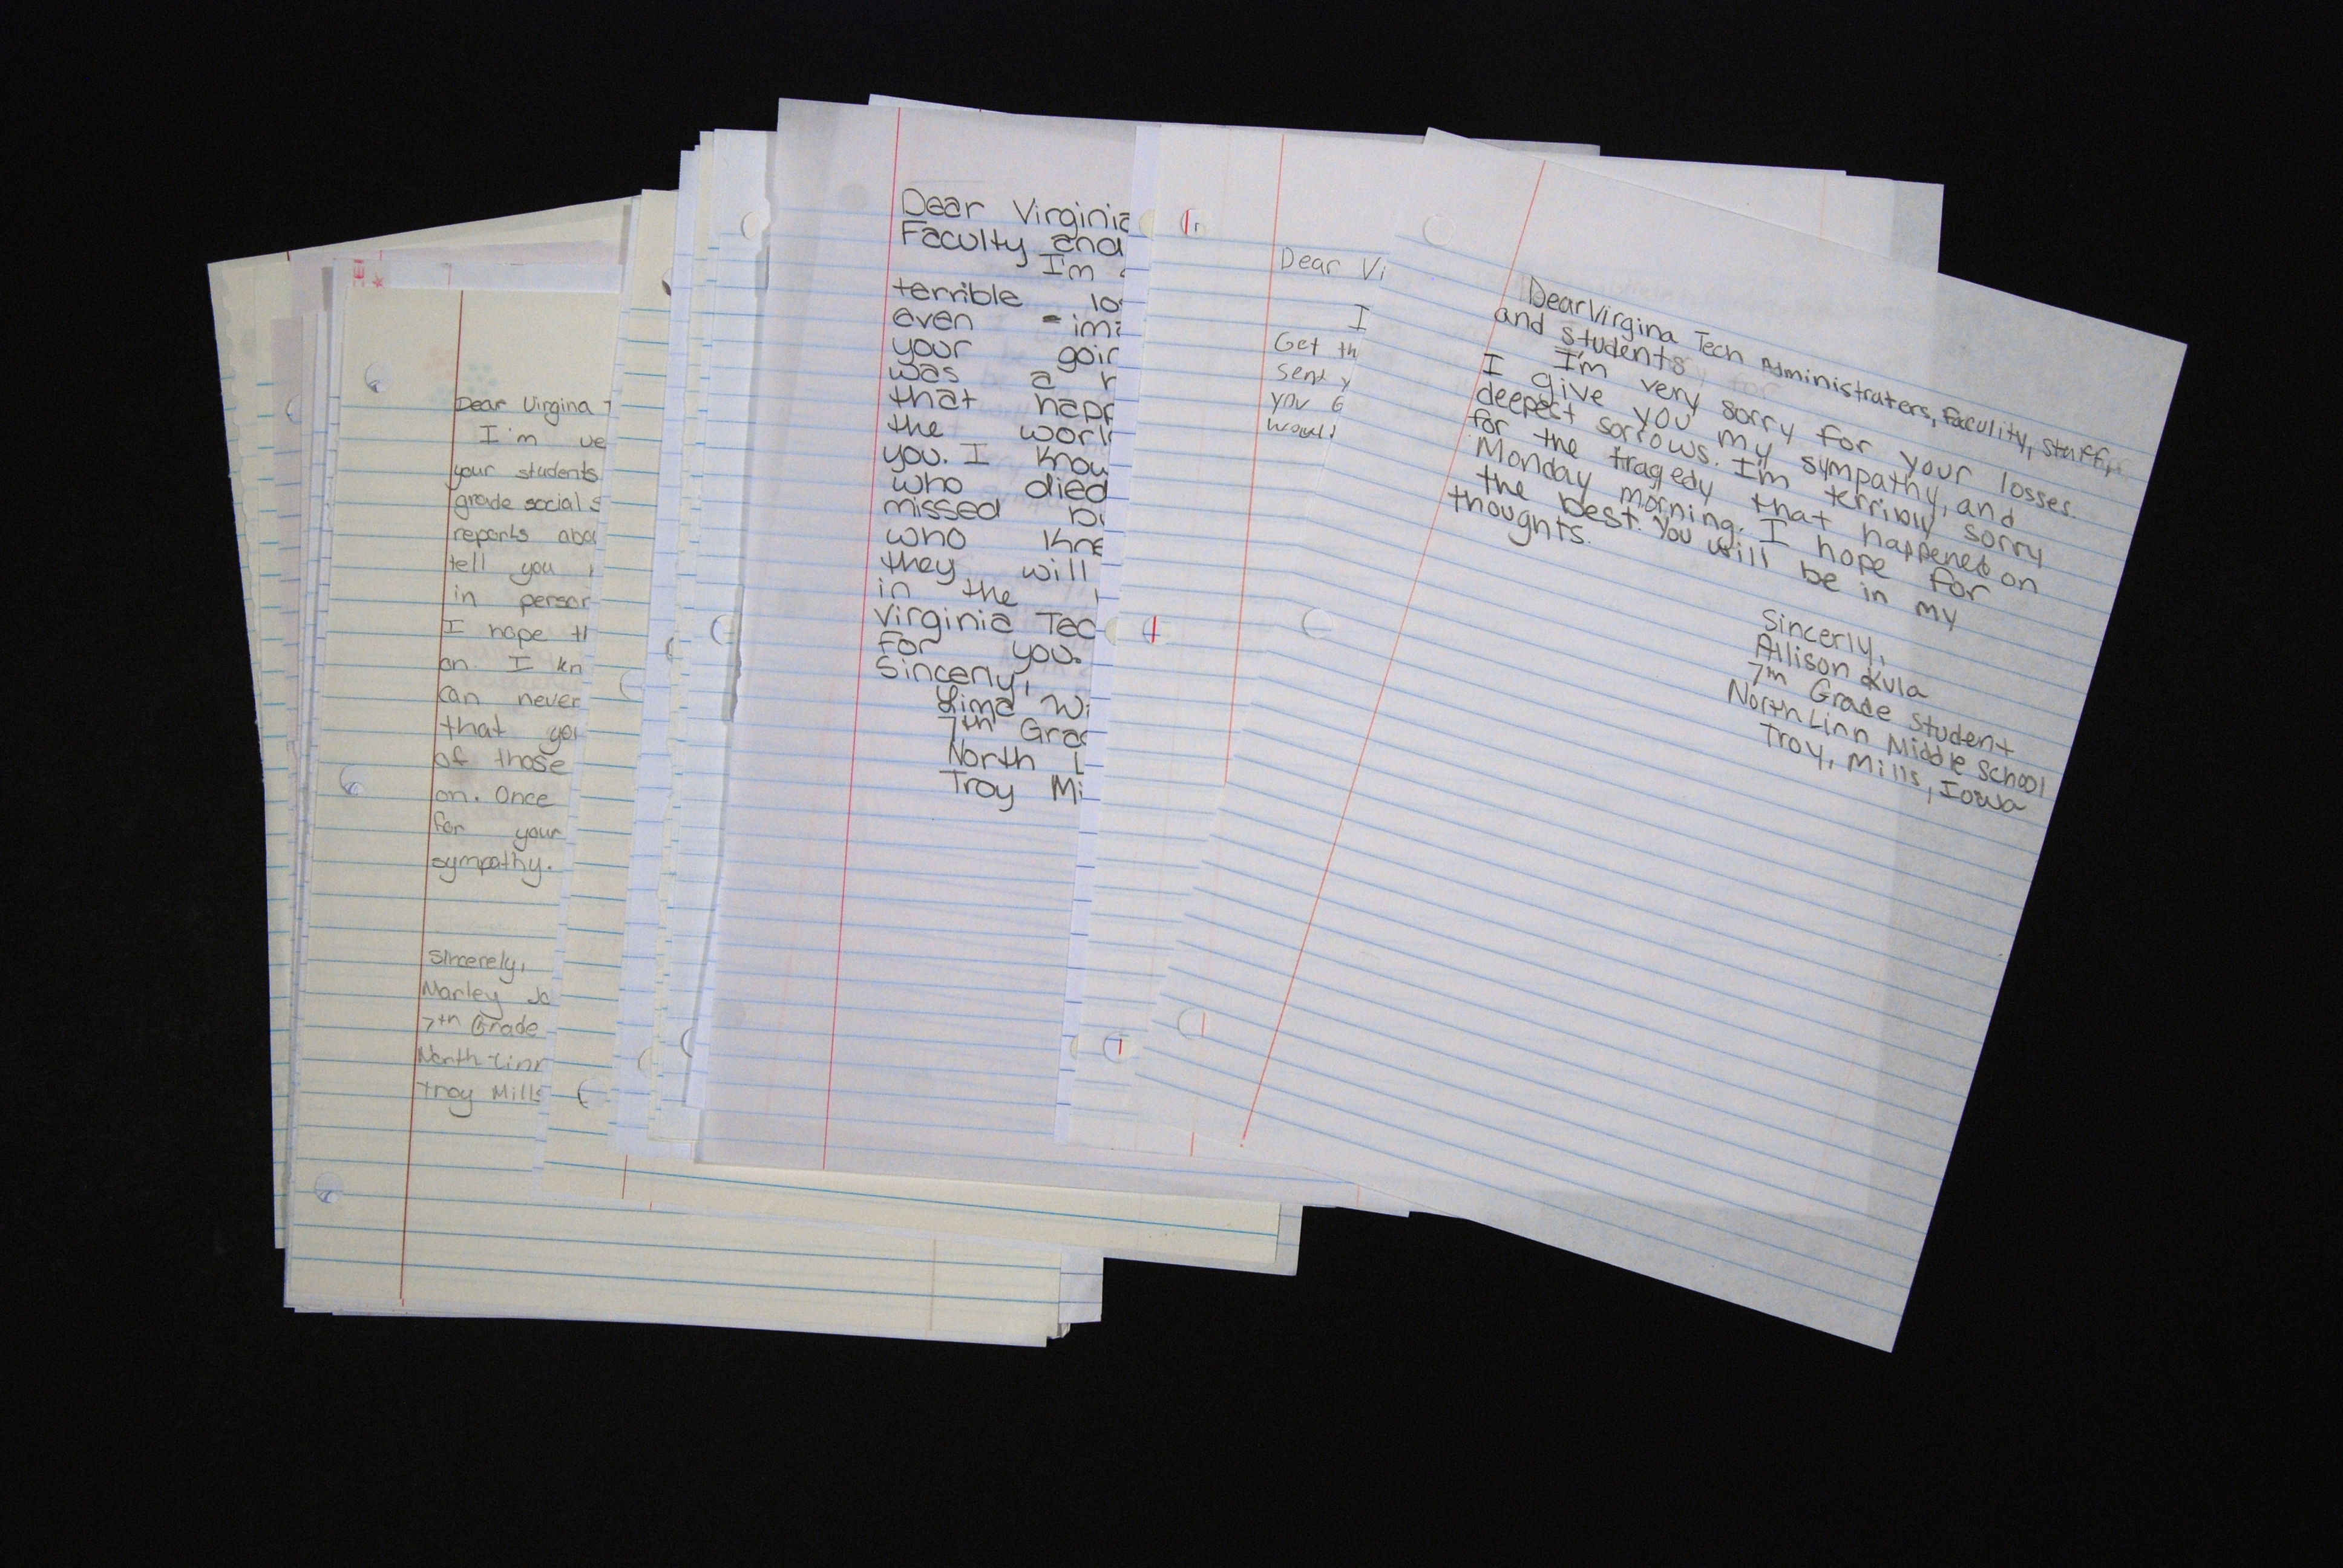 Dear Virgina T
I'm ve
your students
grade social s
reports abou
tell you
in person
I hope th
on. I kn
can never
that you
of those
on. Once
for your
sympathy.
Sincerely,
Marley Jo
7th Grade
North Linn
Troy Mills
Dear Virginia
Faculty and
I'm
terrible los
even imi
your goin
was a r
that happ
the worl
you. I know
who died
missed by
who kne
they will
in the
Virginia Tec
for you.
Sincerly,
Lima Wi
7th Grad
North L
Troy Mi
Dear Vi
I
Get th
sent y
you
would
Dear Virgina Tech Administraters, Faculity, Staff,
and students
I'm very sorry for your losses.
I give you my sympathy, and
deepest sorrows. I'm terribly sorry
for the tragedy that happened on
Monday morning. I hope for
the best. You will be in my
thoughts.
Sincerly,
Allison Kula
7th Grade Student
North Linn Middle School
Troy, Mills, Iowa